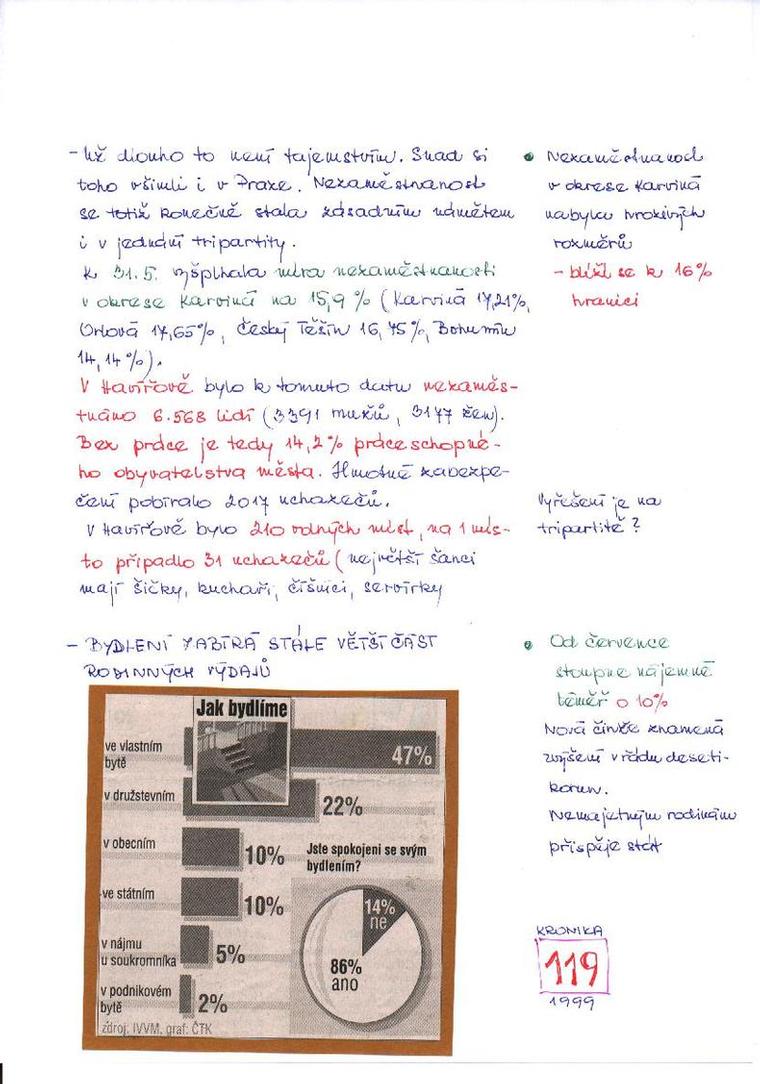 - Už dlouho to není tajemstvím. Snad si
toho všimli i v Praze. Nezaměstnanost
se totiž konečně stala zásadním námětem
i v jednání tripartity.
K 31.5. vyšplhala míra nezaměstnanosti
v okrese Karviná na 15,9 % (Karviná 17,21%,
Orlová 17,65%, Český Těšín 16,75%, Bohumín
14,14%).
V Havířově bylo k tomuto datu nezaměs-
tnáno 6.568 lidí (3391 mužů, 3177 žen).
Bez práce je tedy 14,2% práceschopné-
ho obyvatelstva města. Hmotné zabezpe-
čení pobíralo 2017 uchazečů.
V Havířově bylo 210 volných míst, na 1 mís-
to připadlo 31 uchazečů (největší šanci
mají šičky, kuchaři, číšníci, servírky
• Nezaměstnanost
v okrese Karviná
nabyla hrozivých
rozměrů
- blíží se k 16%
hranici
Vyřešení je na
tripartitě?
- BYDLENÍ ZABÍRÁ STÁLE VĚTŠÍ ČÁST
RODINNÝCH VÝDAJŮ
Jak bydlíme
ve vlastním
bytě
47%
v družstevním
22%
v obecním
10%
ve státním
10%
v nájmu
u soukromníka
5%
v podnikovém
bytě
2%
Jste spokojeni se svým
bydlením?
14%
ne
86%
ano
zdroj: IVVM, graf: ČTK
• Od července
stoupne nájemné
téměř o 10%
Nová činže znamená
zvýšení v řádu deseti-
korun.
Nemajetným rodinám
přispěje stát
KRONIKA
119
1999